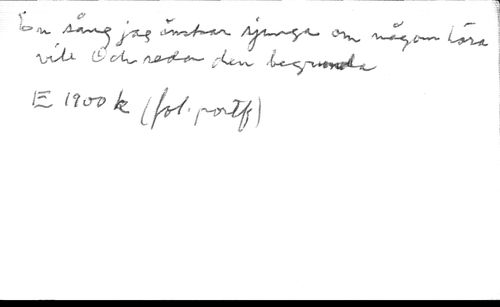 En sång jag önskar sjunga om någon höra
vill Och sedan den begrunda
E 1900 k (fol. portf)